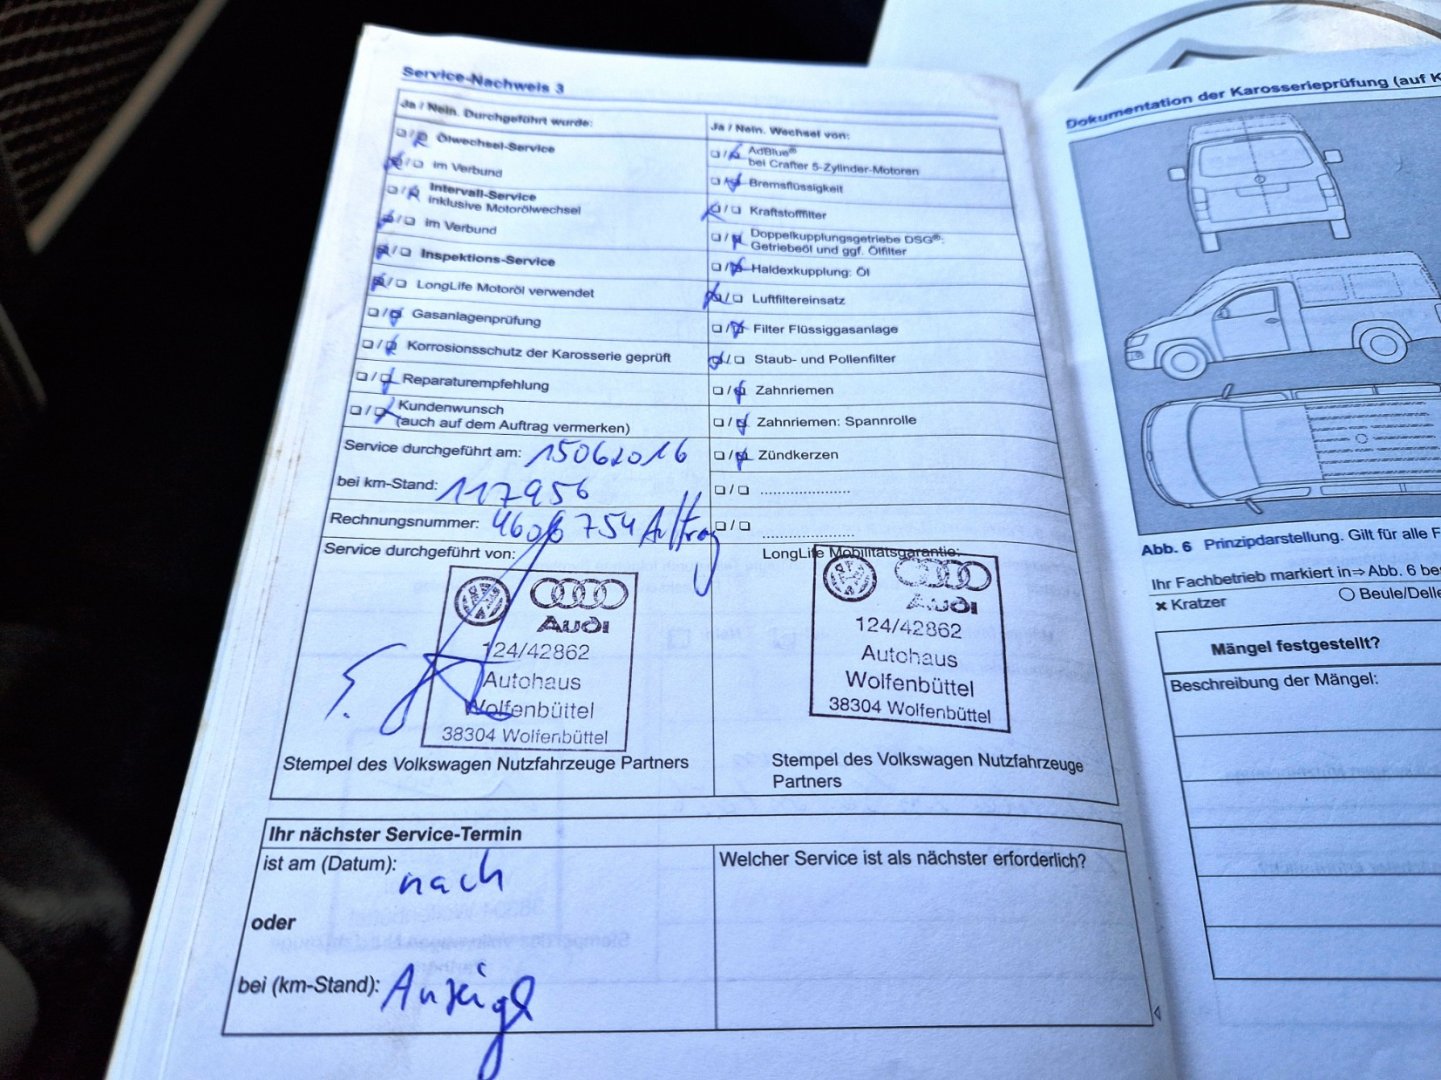 Service-Nachweis 3
Ja / Nein. Durchgeführt wurde:
Ölwechsel-Service
im Verbund
Intervall-Service
inklusive Motorölwechsel
im Verbund
Inspektions-Service
LongLife Motoröl verwendet
Gasanlagenprüfung
Korrosionsschutz der Karosserie geprüft
Reparaturempfehlung
Kundenwunsch
(auch auf dem Auftrag vermerken)
Service durchgeführt am: 15062016
bei km-Stand: 117956
Rechnungsnummer: Auftrag
Service durchgeführt von:
Audi
124/42862
Autohaus
Wolfenbüttel
38304 Wolfenbüttel
Stempel des Volkswagen Nutzfahrzeuge Partners
Ja / Nein. Wechsel von:
AdBlue®
bei Crafter 5-Zylinder-Motoren
Bremsflüssigkeit
Kraftstofffilter
Doppelkupplungsgetriebe DSG®:
Getriebeöl und ggf. Ölfilter
Haldexkupplung: Öl
Luftfiltereinsatz
Filter Flüssiggasanlage
Staub- und Pollenfilter
Zahnriemen
Zahnriemen: Spannrolle
Zündkerzen
LongLife Mobilitätsgarantie:
Audi
124/42862
Autohaus
Wolfenbüttel
38304 Wolfenbüttel
Stempel des Volkswagen Nutzfahrzeuge
Partners
Ihr nächster Service-Termin
ist am (Datum): nach
oder
bei (km-Stand): Anzeige
Welcher Service ist als nächster erforderlich?
Dokumentation der Karosserieprüfung (auf K
Abb. 6 Prinzipdarstellung. Gilt für alle F
Ihr Fachbetrieb markiert in ⇒ Abb. 6 bes
Kratzer
Beule/Delle
Mängel festgestellt?
Beschreibung der Mängel: